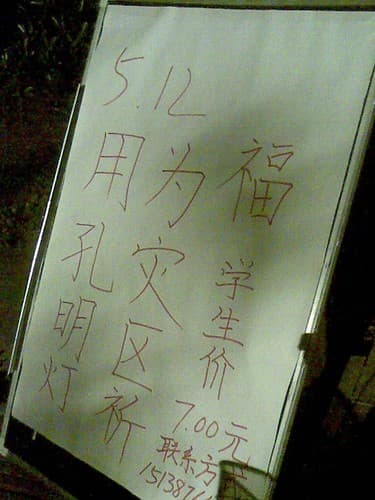 5.12
用孔明灯
为灾区祈
福
学生价
7.00元
联系方式